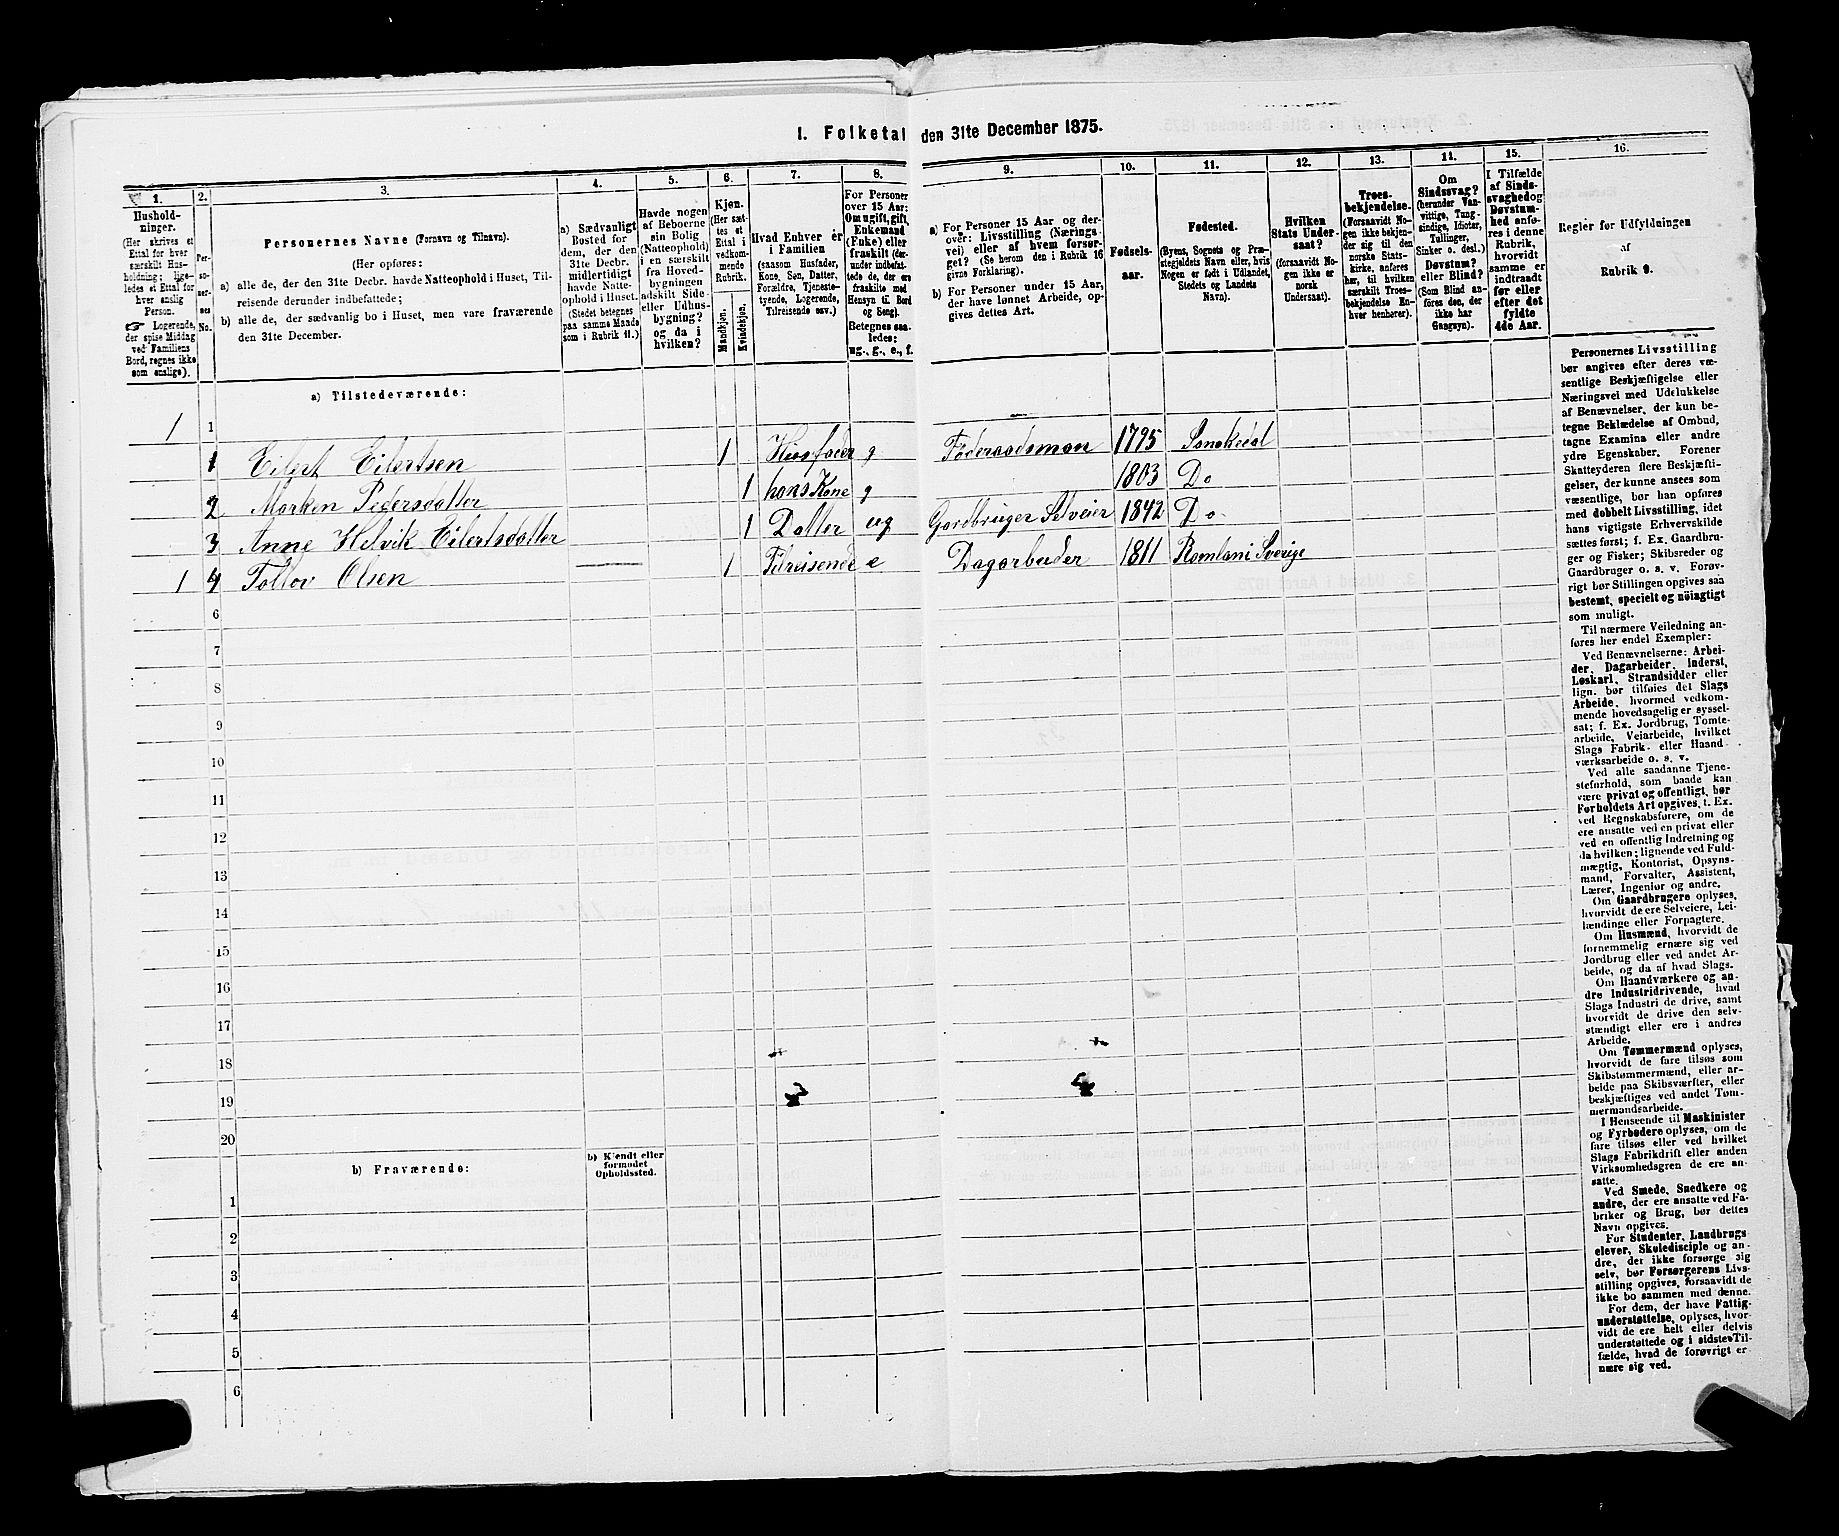 I. Folketal den 31te December 1875.
1.
Hushold-
ninger.
(Her skrives et
Ettal for hver
særskilt Hus-
holdning; lige-
ledes et Ettal for
hver enslig
Person.
Logerende,
der spise Middag
ved Familiens
Bord, regnes ikke
som enslige).
2.
Per-
so-
ner-
nes
No.
3.
Personernes Navne (Fornavn og Tilnavn).
(Her opføres:
a) alle de, der den 31te Decbr. havde Natteophold i Huset, Til-
reisende derunder indbefattede;
b) alle de, der sædvanlig bo i Huset, men vare fraværende
den 31te December.
4.
a) Sædvanligt
Bosted for
dem, der den
31te Decbr.
midlertidigt
havde Natte-
ophold i Huset.
(Stedet betegnes
paa samme Maade
som i Rubrik 11.)
5.
Havde nogen
af Beboerne
sin Bolig
(Natteophold)
i en særskilt
fra Hoved-
bygningen
adskilt Side-
eller Udhus-
bygning?
og da i
hvilken?
6.
Kjøn.
(Her sæt-
tes et
Ettal i
vedkom-
mende
Rubrik.
Mandkjøn.
Kvindekjøn.
7.
Hvad Enhver er
i Familien
(saasom Husfader,
Kone, Søn, Datter,
Forældre, Tjeneste-
tyende, Logerende,
Tilreisende osv.)
8.
For Personer
over 15 Aar:
Om ugift, gift,
Enkemand
(Enke) eller
fraskilt (der-
under indbefat-
tede de, der ere
fraskilte med
Hensyn til Bord
og Seng).
Betegnes saa-
ledes:
ug., g., e., f.
9.
a) For Personer 15 Aar og der-
over: Livsstilling (Nærings-
vei) eller af hvem forsør-
get? (Se herom den i Rubrik 16
givne Forklaring).
b) For Personer under 15 Aar,
der have lønnet Arbeide, op-
gives dettes Art.
10.
Fødsels-
aar.
11.
Fødested.
(Byens, Sognets og Præ-
stegjeldets Navn eller, hvis
Nogen er født i Udlandet,
Stedets og Landets
Navn).
12.
Hvilken
Stats Under-
saat?
(forsaavidt No-
gen ikke er
norsk
Undersaat).
13.
Troes-
bekjendelse.
(Forsaavidt No-
gen ikke bekjen-
der sig til den
norske Stats-
kirke, anføres
her, til hvilken
særskilt Troes-
bekjendelse En-
hver henhører).
14.
Om
Sindssvag?
(herunder Van-
vittige, Tung-
sindige, Idioter,
Tullinger,
Sinker o. desl.)
Døvstum?
eller Blind?
(Som Blind an-
føres dee, der
ikke har
Gangsyn).
15.
I Tilfælde
af Sinds-
svaghed og
Døvstum-
hed anfø-
res i denne
Rubrik,
hvorvidt
samme er
indtraadt
før eller
efter det
fyldte
4de Aar.
16.
Regler før Udfyldningen
af
Rubrik 9.
a) Tilstedeværende:
1
1
1 Eilert Eilertsen 1 Huusfader g Føderaadsman 1795 Sanokedal
2 Marken Pedersdatter 1 hans Kone g 1803 Do
3 Anne Helvik Eilertsdatter 1 Datter ug Gardbruger Selveier 1842 Do
1 4 Tollov Olsen 1 Tilreisende e Dagarbeider 1811 Romlani Sverige
6
7
8
9
10
11
12
13
14
15
16
17
18
19
20
b) Fraværende:
b) Kjendt eller
formodet
Opholdssted.
1
2
3
4
5
6
Personernes Livsstilling
bør angives efter deres væ-
sentlige Beskjæftigelse eller
Næringsvei med Udelukkelse
af Benævnelser, der kun be-
tegne Beklædelse af Ombud,
tagne Examina eller andre
ydre Egenskaber. Forener
Skatteyderen flere Beskjæfti-
gelser, der kunne ansees som
væsentlige, bør han opføres
med dobbelt Livsstilling, idet
hans vigtigste Erhvervskilde
sættes først; f. Ex. Gaardbru-
ger og Fisker; Skibsreder og
Gaardbruger o. s. v. Forøv-
rigt bør Stillingen opgives saa
bestemt, specielt og nöiagtigt
som muligt.
Til nærmere Veiledning an-
føres her endel Exempler:
Ved Benævnelserne: Arbei-
der, Dagarbeider, Inderst,
Løskarl, Strandsidder eller
lign. bør tilføies det Slags
Arbeide, hvormed vedkom-
mende hovedsagelig er syssel-
sat; f. Ex. Jordbrug, Tomte-
arbeide, Veiarbeide, hvilket
Slags Fabrik- eller Haand-
værksarbeide o. s. v.
Ved alle saadanne Tjene-
steforhold, som baade kan
være privat og offentligt, bør
Forholdets Art opgives, t. Ex.
ved Regnskabsførere, om de
ere ansatte ved en privat eller
ved en offentlig Indretning og
da hvilken; lignende ved Fuld-
mægtig, Kontorist, Opsyns-
mand, Forvalter, Assistent,
Lærer, Ingeniør og andre.
Om Gaardbrugere oplyses,
hvorvidt de ere Selveiere, Lei-
lændinge eller Forpagtere.
Om Husmænd, hvorvidt de
fornemmelig ernære sig ved
Jordbrug eller ved andet Ar-
beide, og da af hvad Slags.
Om Haandværkere og an-
dre Industridrivende, hvad
Slags Industri de drive, samt
hvorvidt de drive den selv-
stændigt eller ere i andres
Arbeide.
Om Tømmermænd oplyses,
hvorvidt de fare tilsøs som
Skibstømmermænd, eller ar-
beide paa Skibsværfter, eller
beskjæftiges ved andet Tøm-
mermandsarbeide.
I Henseende til Maskinister
og Fyrbødere oplyses, om de
fare tilsøs eller ved hvilket
Slags Fabrikdrift eller anden
Virksomhedsgren de ere an-
satte.
Ved Smede, Snedkere og
andre, der ere ansatte ved Fa-
briker og Brug, bør dettes
Navn opgives.
For Studenter, Landbrugs-
elever, Skoledisciple og an-
dre, der ikke forsørge sig
selv, bør Forsørgerens Livs-
stilling opgives, forsaavidt de
ikke bo sammen med denne.
For dem, der have Fattig-
understøttelse, oplyses, hvor-
vidt de ere helt eller delvis
understøttede og i sidste Til-
fælde, hvad de forøvrigt er-
nære sig ved.